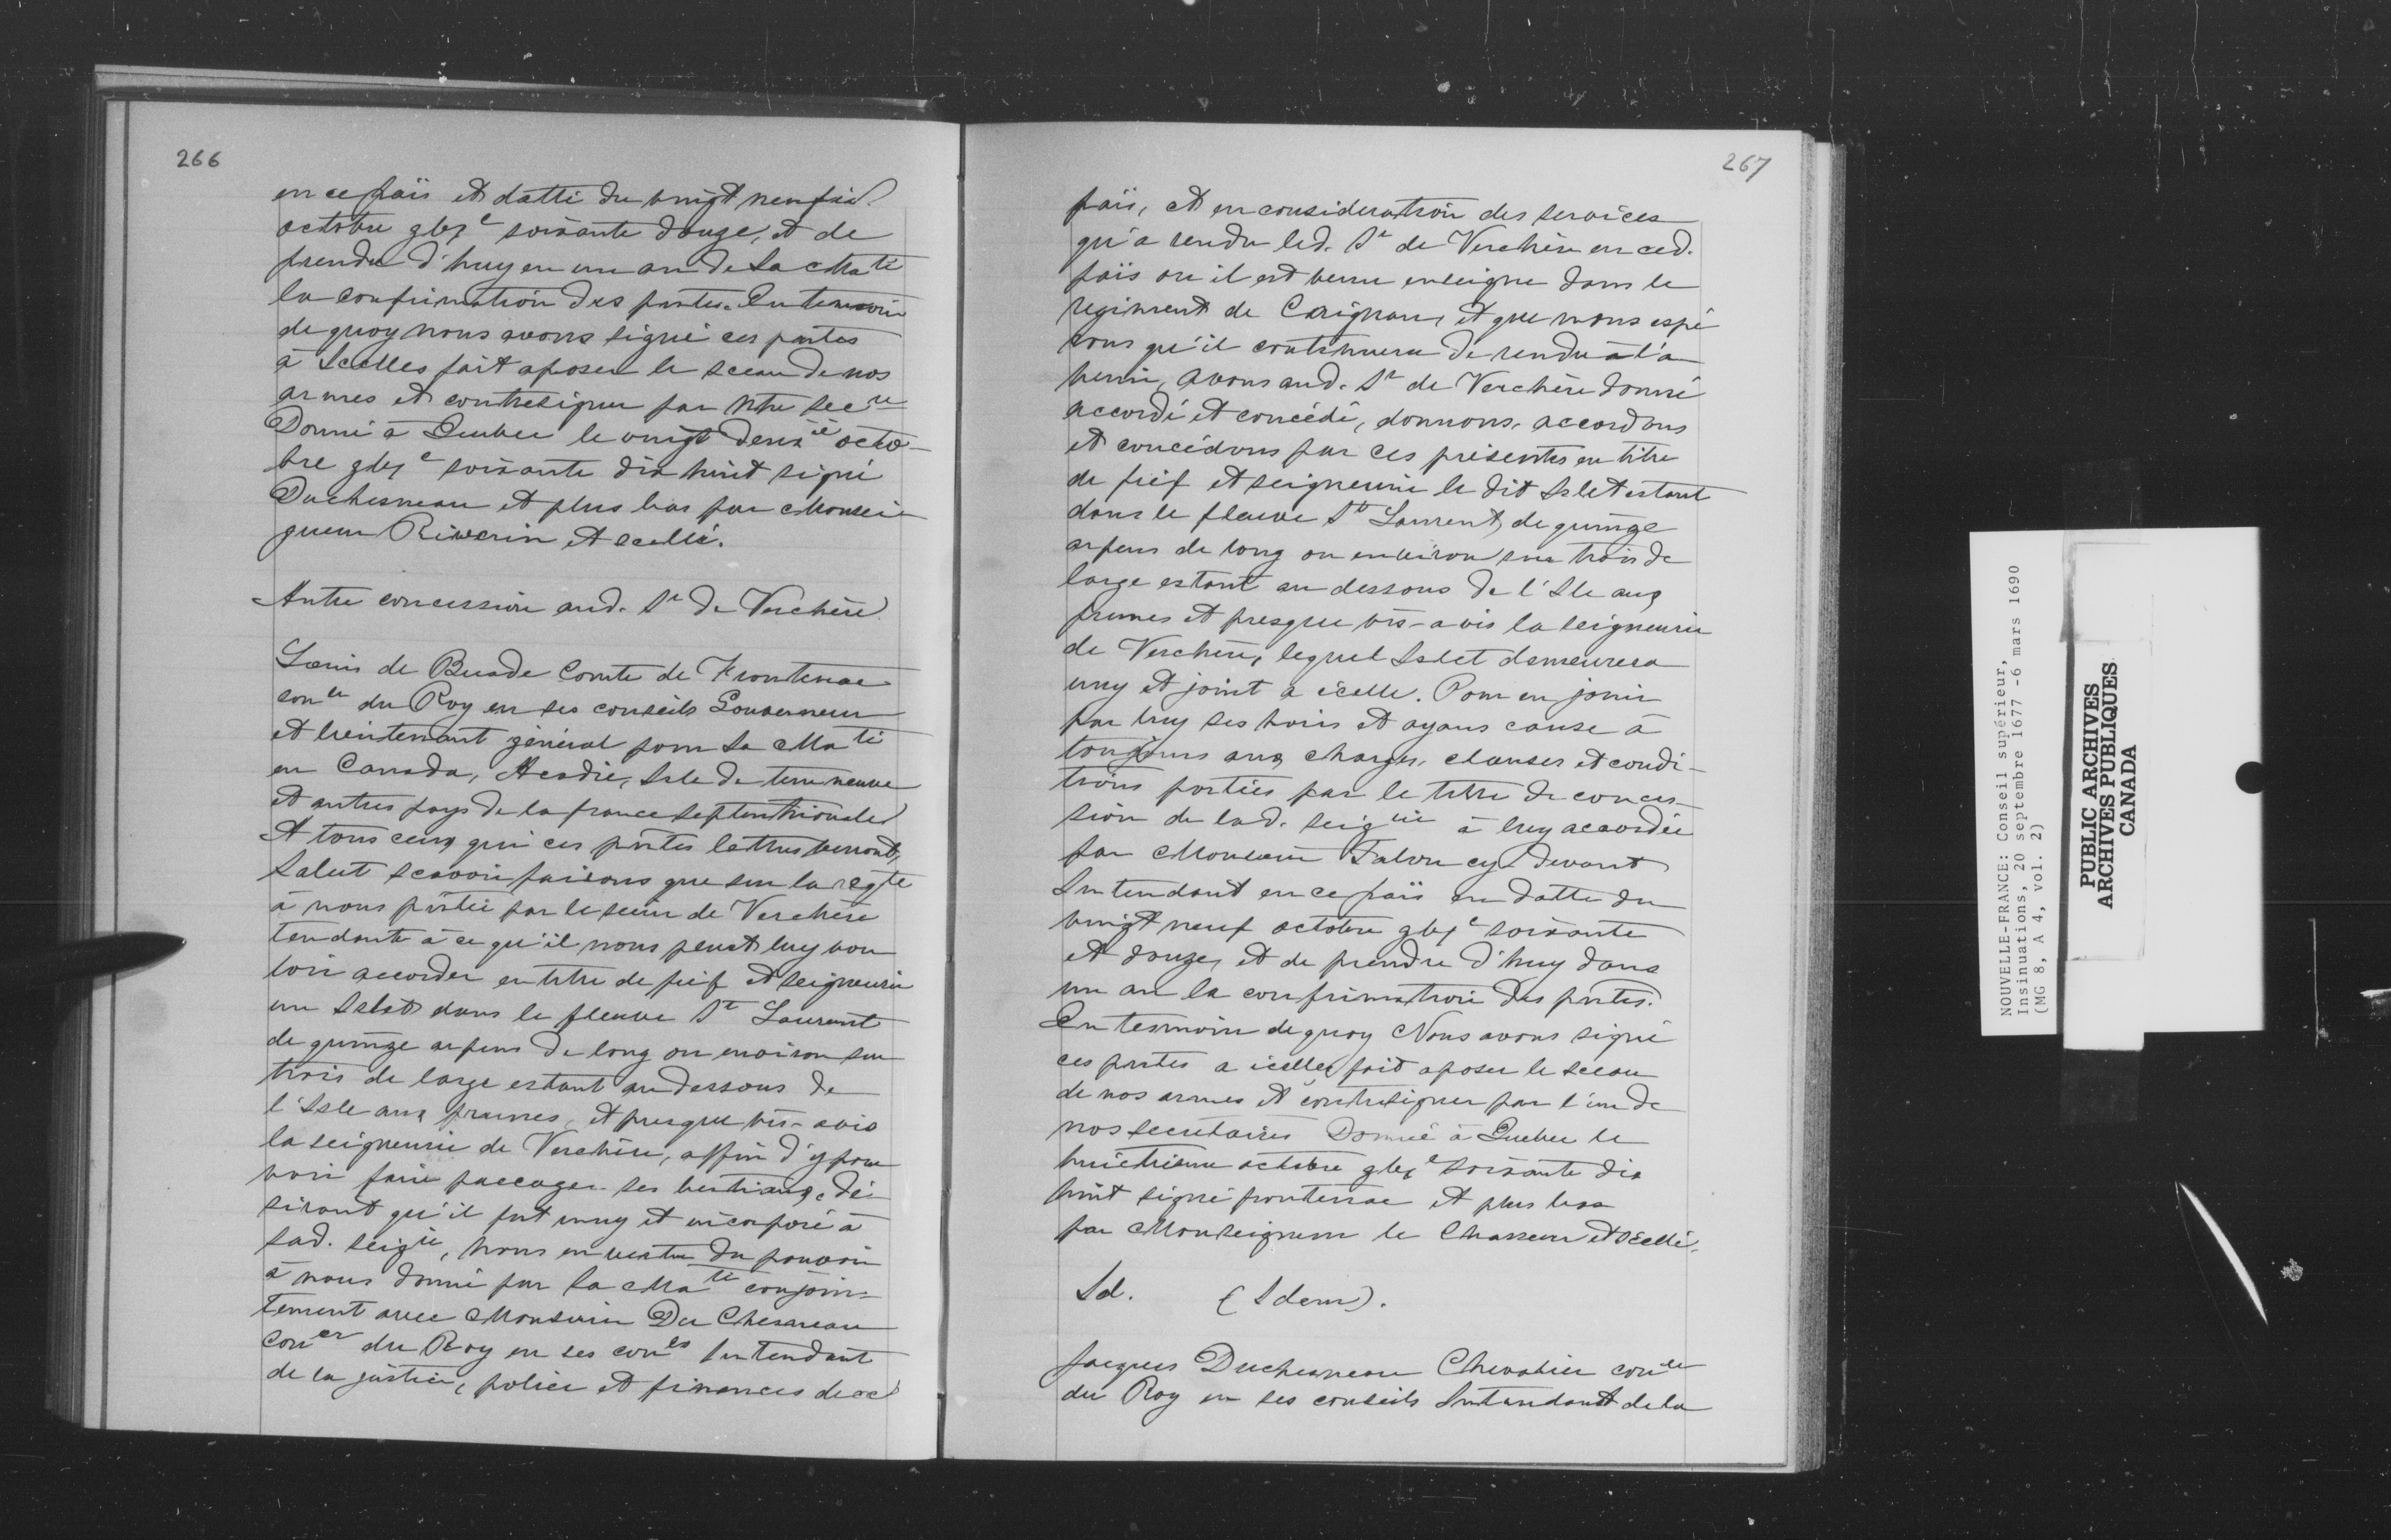 266
en ce païs et datté du vingt neufie
octobre gbxc soixante douze, et de
prendre d'huy en un an de Sa Maté
la confirmation des pntes. En temoin
de quoy nous avons signé ces pntes
à Icelles fait aposer le sceau de nos
armes et contresigner par ntre secre
Donné à Quebec le vingt deuxe octo-
bre gbxc soixante dix huit signé
Duchesneau et plus bas par Monsei-
gneur Riverin et scellé.
Autre concession aud. Sr de Verchère
Louis de Buade Comte de Frontenac
coner du Roy en ses conseils Gouverneur
et lieutenant général pour Sa Maté
en Canada, Acadie, Isle de terre neuve
et autres pays de la france septentrionale
A tous ceux qui ces pntes lettres verront,
Salut scavoir faisons que sur la reqte
à nous pntée par le sieur de Verchère
tendante à ce qu'il nous pleust luy vou
loir accorder en titre de fief et seigneurie
un Islet dans le fleuve St Laurent
de quinze arpens de long ou environ sur
trois de large estant au dessous de
l'Isle aux prunes, et presque vis-avis
la seigneurie de Verchère, affin d'y pou
voir faire paccager ses bestiaux, dé-
sirant qu'il fut uny et incorporé à
sad. seigie, nous en vertu du pouvoir
à nous donné par Sa Maté conjoin-
tement avec Monsieur Du Chesneau
Coner du Roy en ses cones Intendant
de la justice, police et finances de ce
267
païs, et en consideration des services
qu'a rendu led. Sr de Verchère en ced.
païs ou il est venu enseigne dans le
regiment de Carignan, et que nous espé
rons qu'il continuera de rendre à l'a
venir, avons aud. Sr de Verchère donné
accordé et concédé, donnons, accordons
et concédons par ces présentes en titre
de fief et seigneurie le dit Islet estant
dans le fleuve St Laurent, de quinze
arpens de long ou environ sur trois de
large estant au dessous de l'Isle aux
prunes et presque vis-avis la seigneurie
de Verchère, lequel Islet demeurera
uny et joint à icelle. Pour en jouir
par luy ses hoirs et ayans cause à
toujours aux charges, clauses et condi-
tions portées par le titre de conces-
sion de lad. seigrie à luy accordée
par Monsieur Talon cy devant
Intendant en ce païs en datte du
vingt neuf octobre gbxc soixante
et douze, et de prendre d'huy dans
un an la confirmation des pntes.
En tesmoin de quoy Nous avons signé
ces pntes a icelles fait aposer le sceau
de nos armes et contresigner par l'un de
nos secretaires Donné à Quebec le
huictiesme octobre gbxc soixante dix
huit signé frontenac et plus bas
par Monseigneur le Chasseur et scellé.
Id. (Idem).
Jacques Duchesneau Chevalier coner
du Roy en ses conseils Intendant de la
NOUVELLE-FRANCE: Conseil supérieur,
Insinuations, 20 septembre 1677 -6 mars 1690
(MG 8, A 4, vol. 2)
PUBLIC ARCHIVES
ARCHIVES PUBLIQUES
CANADA